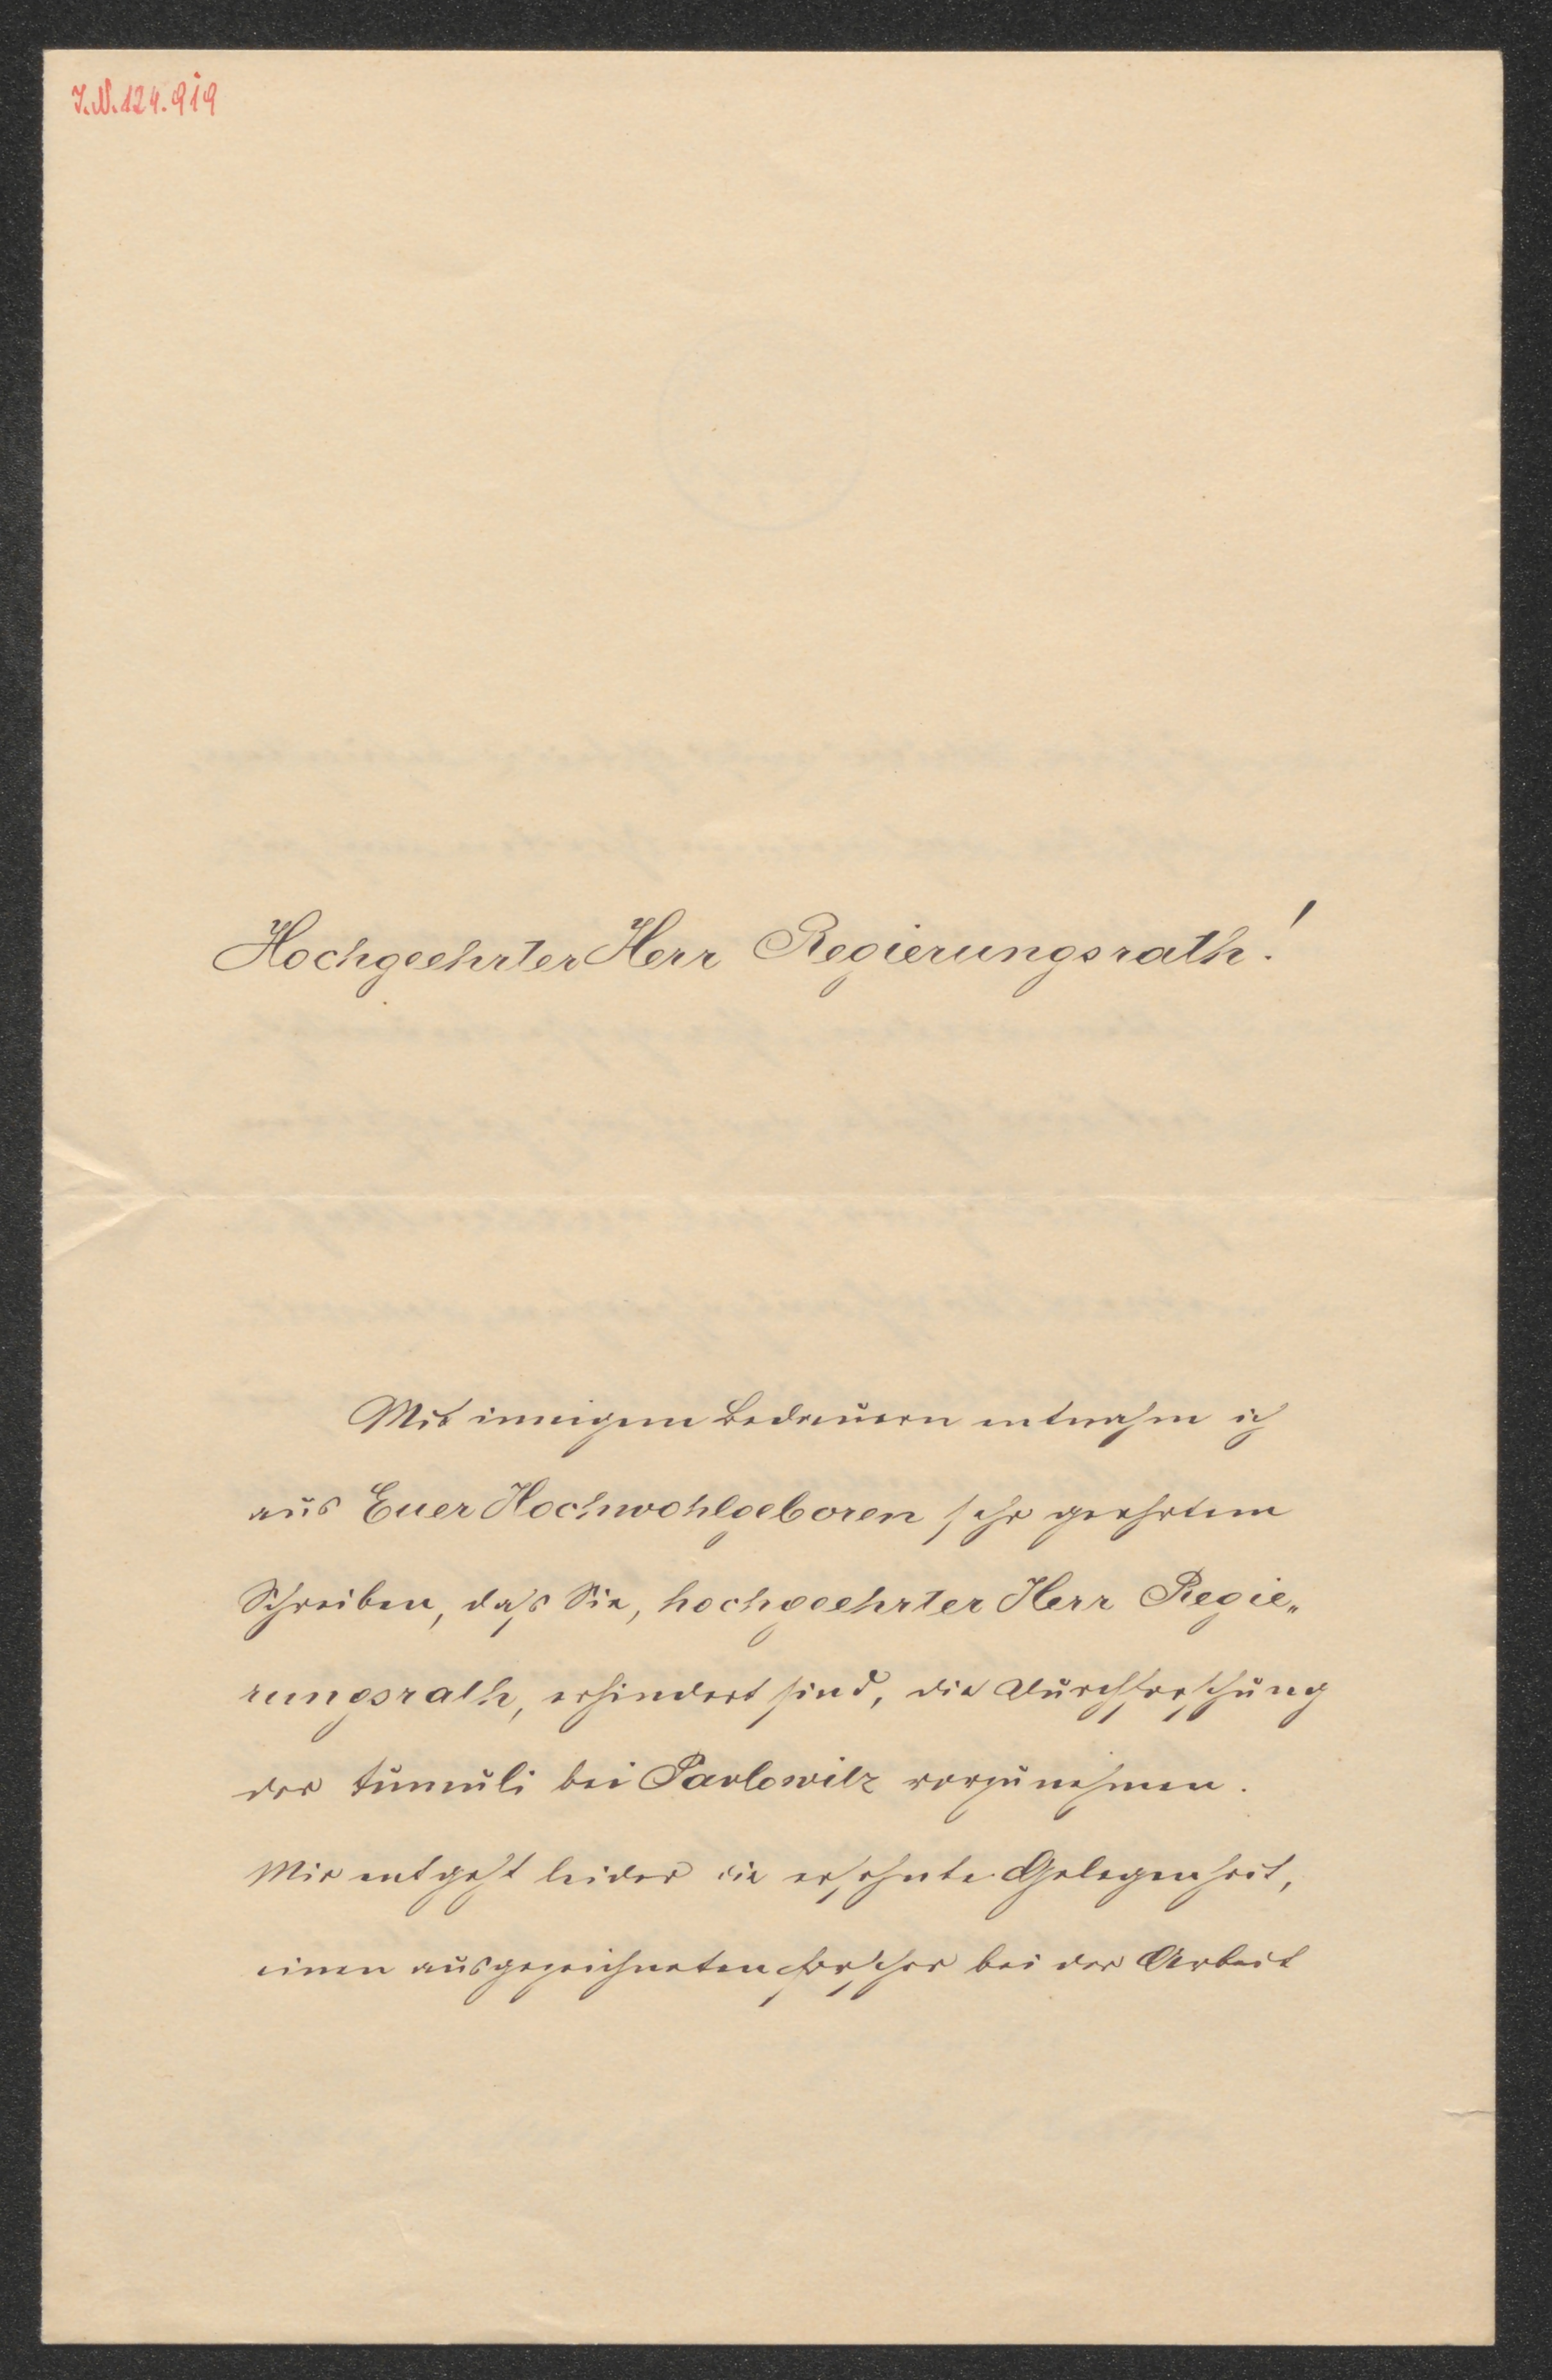 J.N. 124.919
Hochgeehrter Herr Regierungsrath!
Mit innigem Bedauern entnahm ich
aus Euer Hochwohlgeboren sehr geehrtem
Schreiben, daß Sie, hochgeehrter Herr Regie„
rungsrath, erhindert sind, die Durchforschung
der tumuli bei Pavlowitz vorzunehmen.
Mir entgeht leider die ersehnte Gelegenheit,
einen ausgezeichneten Forscher bei der Arbeit